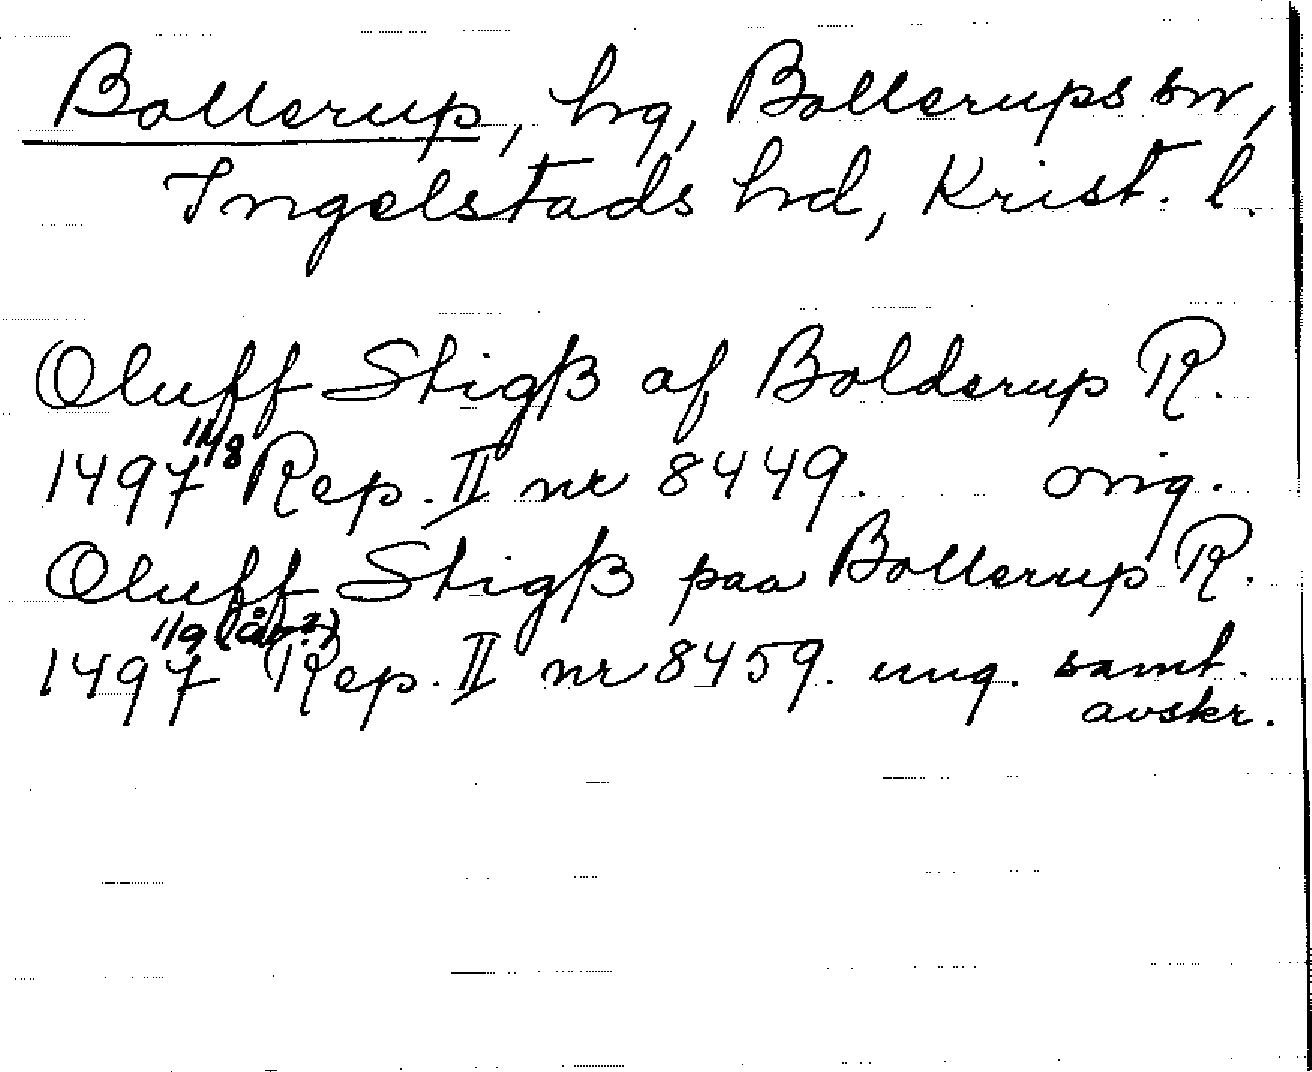 Bollerup, hg, Bollerups sn,
Ingelstads hd, Krist. l.
Oluff Stigß af Bolderup R.
1497 11/8 Rep. II nr 8449. orig.
Oluff Stigß paa Bollerup R.
1497 1/9 (år?) Rep. II nr 8459. ung. samt.
avskr.